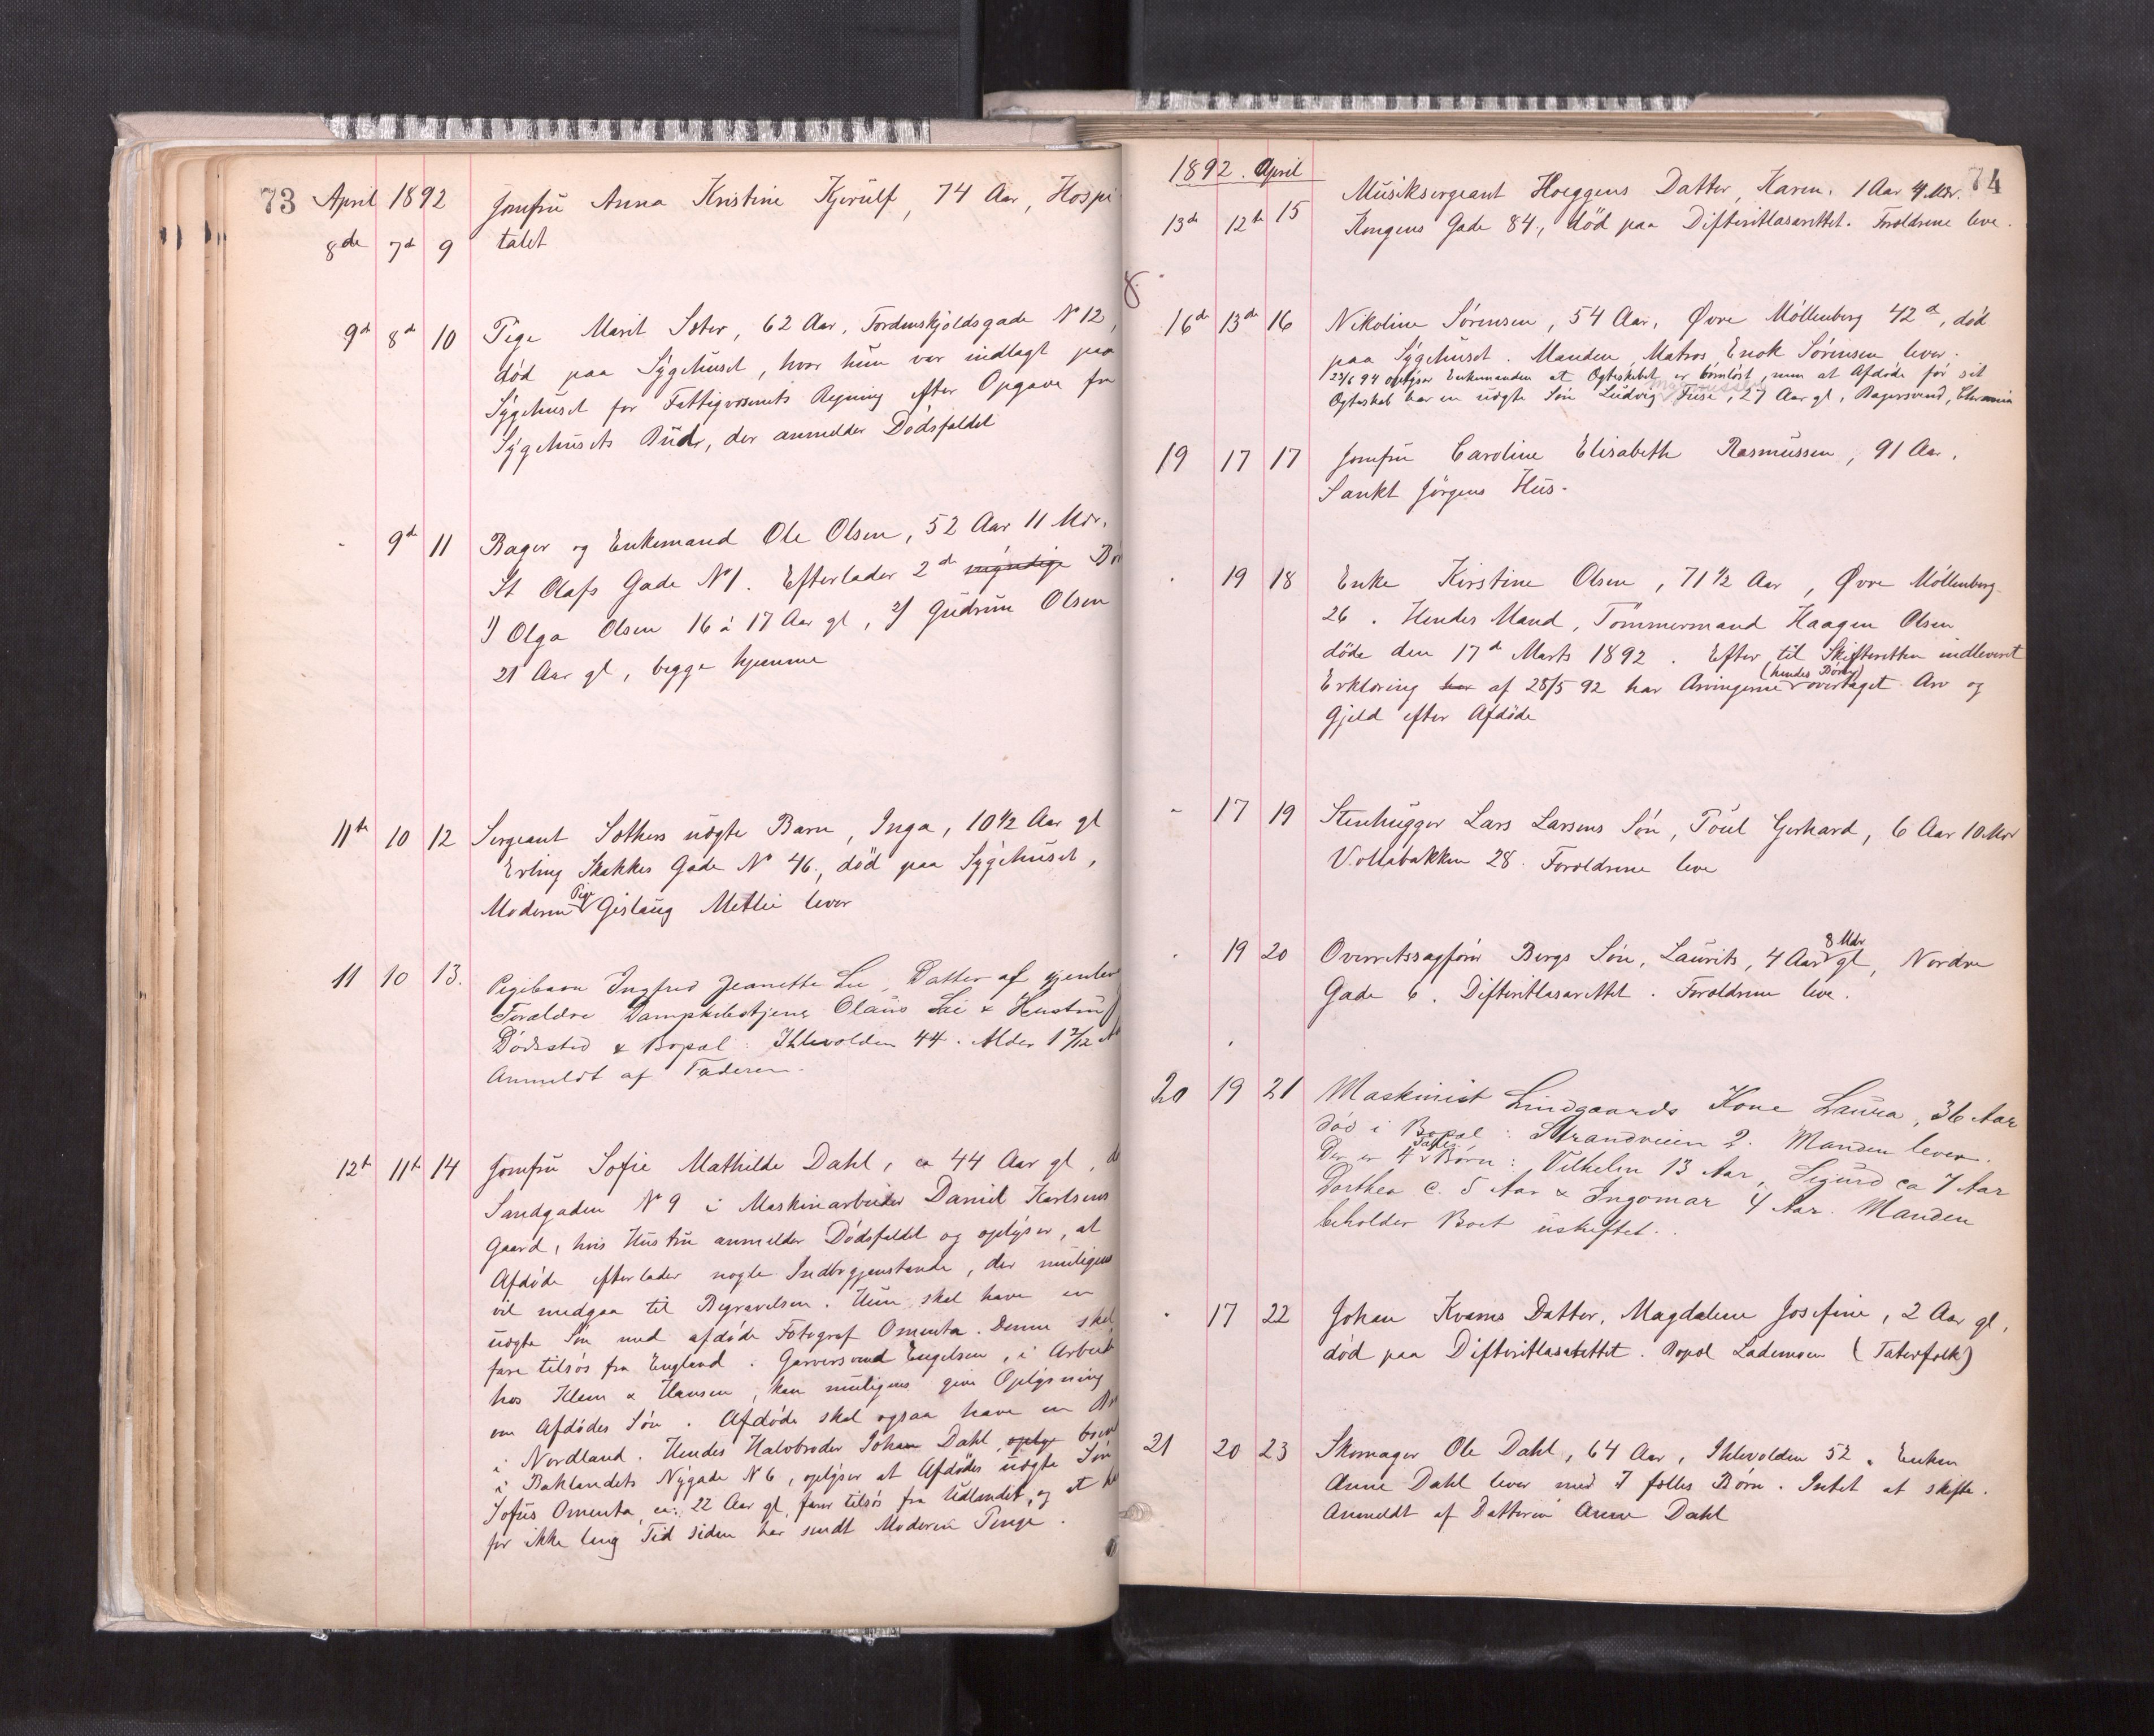 73 April 1892
8de 7d 9 Jomfru Anna Kristine Kjerulf, 74 Aar, Hospi-
talet
9d 8d 10 Pige Marit Sæter, 62 Aar, Tordenskjoldsgade No 12,
død paa Sygehuset, hvor hun var indlagt paa
Sygehuset for Fattigvæsenets Regning efter Opgave fra
Sygehusets Bud, der anmelder Dødsfaldet
- 9d 11 Bager og Enkemand Ole Olsen, 52 Aar 11 Mdr.
St Olafs Gade No 1. Efterlader 2de myndige Bør
1) Olga Olsen 16 à 17 Aar gl, 2) Gudrun Olsen
21 Aar gl, begge hjemme
11te 10 12 Sergeant Sæthers uægte Barn, Inga, 10 1/2 Aar gl
Erling Skakkes Gade No 46, død paa Sygehuset,
Moderen Pige Gislaug Metlie lever
11 10 13. Pigebarn Ingfrid Jeanette Lie, Datter af gjenlev
Forældre Dampskibstjener Olaus Lie & Hustru
Dødssted & Bopæl: Ihlevolden 44. Alder 1 2/12 A
Anmeldt af Faderen.
12t 11t 14 Jomfru Sofie Mathilde Dahl, ca 44 Aar gl, d
Sandgaden No 9 i Maskinarbeider Daniel Karlsens
Gaard, hvis Hustru anmelder Dødsfaldet og oplyser, at
Afdøde efterlader nogle Indbogjenstande, der muligens
vil medgaa til Begravelsen. Hun skal have en
uægte Søn med afdøde Fotograf Omenta. Denne skal
fare tilsøs fra England. Garversvend Engelsen, i Arbeid
hos Klem & Hansen, kan muligens give Oplysning
om Afdødes Søn. Afdøde skal ogsaa have en Br
i Nordland. Hendes Halvbroder Johan Dahl, oply boen
i Baklandets Nygade No 6, oplyser at Afdødes uægte Søn
Sofus Omenta, ca: 22 Aar gl, farer tilsøs fra Udlandet, og at h
for ikke lang Tid siden har sendt Moderen Penge.
1892. April 74
13de 12te 15 Musiksergeant Hoeggens Datter, Karen, 1 Aar 4 Mdr.
Kongens Gade 84, død paa Difteritlasarettet. Forældrene leve.
16de 13de 16 Nikoline Sørensen, 54 Aar, Øvre Møllenberg 42a, død
paa Sygehuset. Manden, Matros Enok Sørensen lever.
23/6 94 oplyser Enkemanden at Ægteskabet er børnløst, men at Afdøde før sit
Ægteskab har en uægte Søn Ludvig Fuse, 27 Aar gl, Bagersvend, Chrania
19 17 17 Jomfru Caroline Elisabeth Rasmussen, 91 Aar,
Sankt Jørgens Hus.
- 19 18 Enke Kirstine Olsen, 71 1/2 Aar, Øvre Møllenberg
26. Hendes Mand, Tømmermand Haagen Olsen
døde den 17de Marts 1892. Efter til Skifteretten indleveret
Erklæring har af 28/5 92 har Arvingerne (hendes Børn) overtaget Arv og
Gjeld efter Afdøde
- 17 19 Stenhugger Lars Larsens Søn, Poul Gerhard, 6 Aar 10 Mdr
Vollabakken 28. Forældrene leve
- 19 20 Overretssagfører Bergs Søn, Laurits, 4 Aar 8 Mdr gl, Nordre
Gade 6. Difteritlasarettet. Forældrene leve.
20 19 21 Maskinist Lindgaards Kone Laura, 36 Aar
død i Bopæl: Strandveien 2. Manden lever.
Der er 4 fælles Børn: Vilhelm 13 Aar, Sigurd ca 7 Aar
Dorthea c. 5 Aar & Ingomar 4 Aar. Manden
beholder Boet uskiftet.
- 17 22 Johan Kvams Datter, Magdalene Josefine, 2 Aar gl,
død paa Difteritlasarettet. Bopæl Lademoen (Taterfolk)
21 20 23 Skomager Ole Dahl, 64 Aar, Ihlevolden 52. Enken
Anne Dahl lever med 7 fælles Børn. Intet at skifte.
Anmeldt af Datteren Anne Dahl